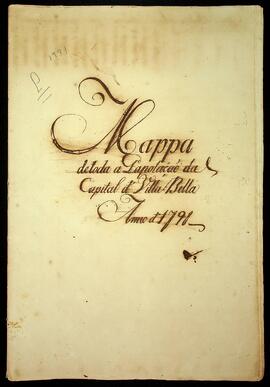 1791
Mappa
de toda a Papolacaõ da
Capital de Villa-Bella
Anno d 1791